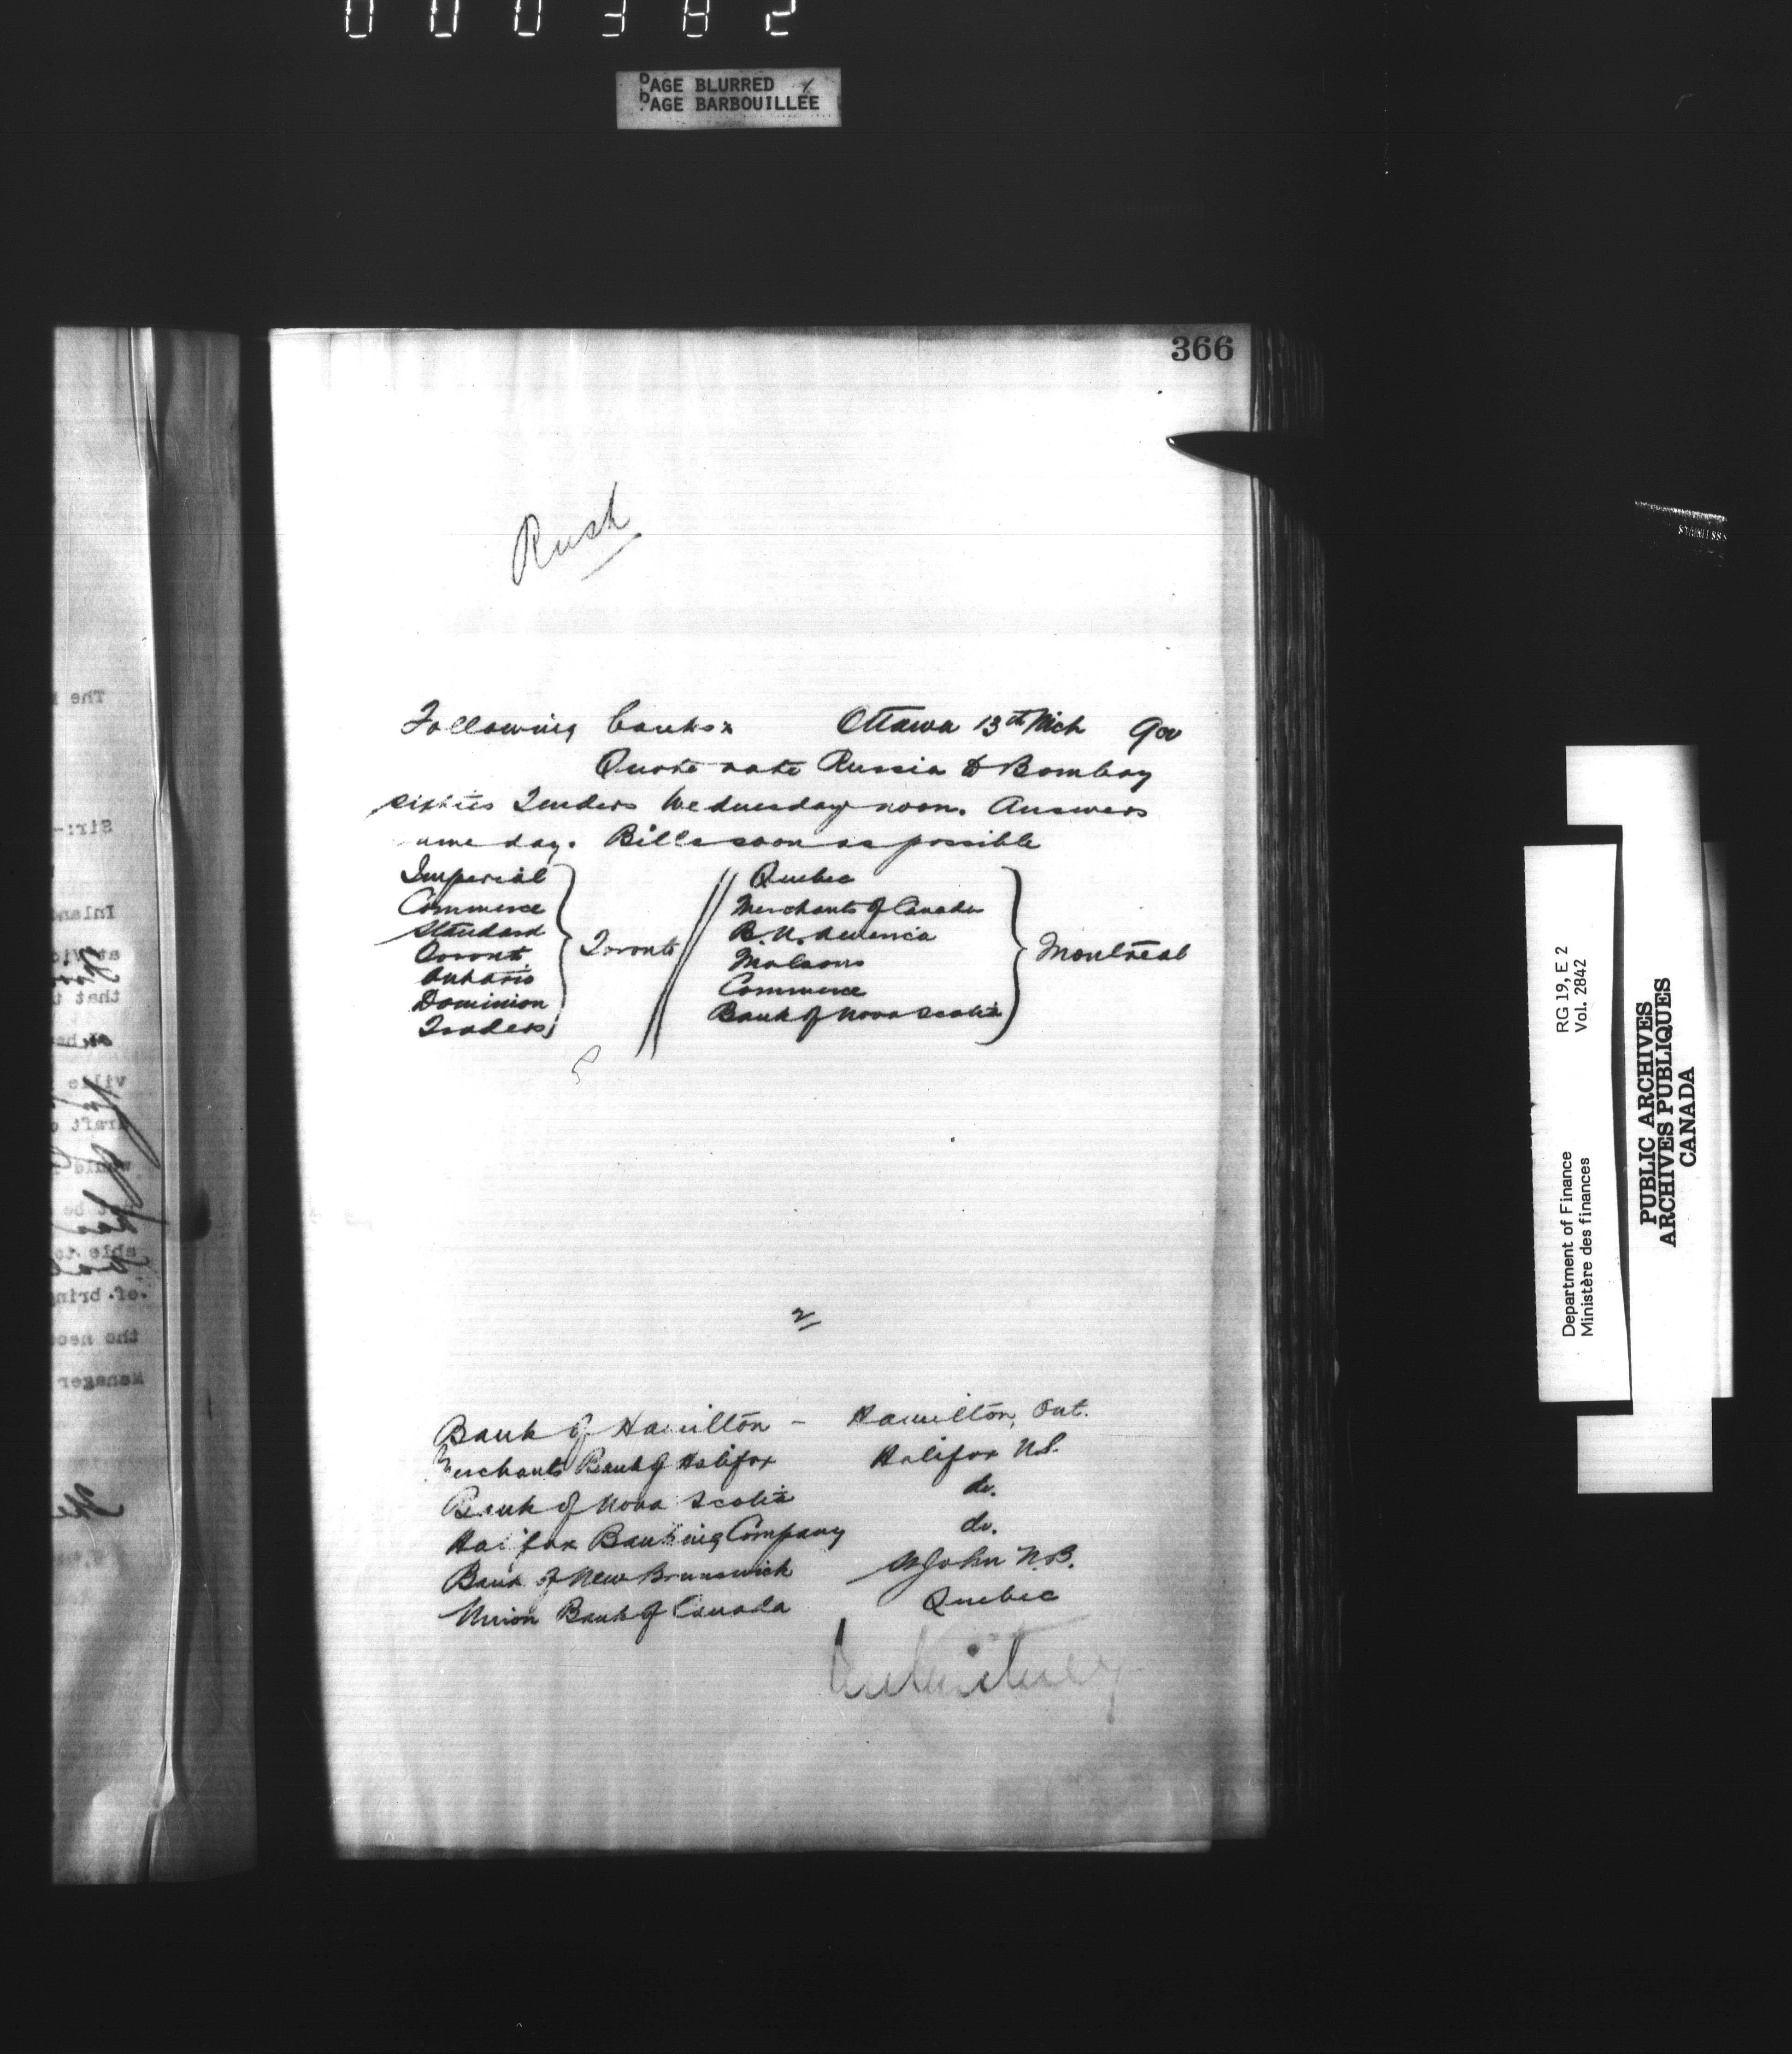 000382
PAGE BLURRED
PAGE BARBOUILLÉE
366
Rush
Following banks:
Ottawa 13th Mch 900
Quote rate Russia to Bombay
sixties Tenders Wednesday noon. Answers
ame day. Bills soon as possible
Imperial
Commerce
Standard
Toronto
Ontario
Dominion
Traders
Toronto
Quebec
Merchants of Canada
B. N. America
Molsons
Commerce
Bank of Nova Scotia
Montreal
2
Bank of Hamilton - Hamilton, Ont.
Merchants Bank of Halifax Halifax N.S.
Bank of Nova Scotia do.
Halifax Banking Company do.
Bank of New Brunswick St John N.B.
Union Bank of Canada Quebec
The
Sir:-
Inlan
that t
ville
draft
would
ot be
able to
of bring
the nec
Manager
Department of Finance RG 19, E 2
Ministère des finances Vol. 2842
PUBLIC ARCHIVES
ARCHIVES PUBLIQUES
CANADA